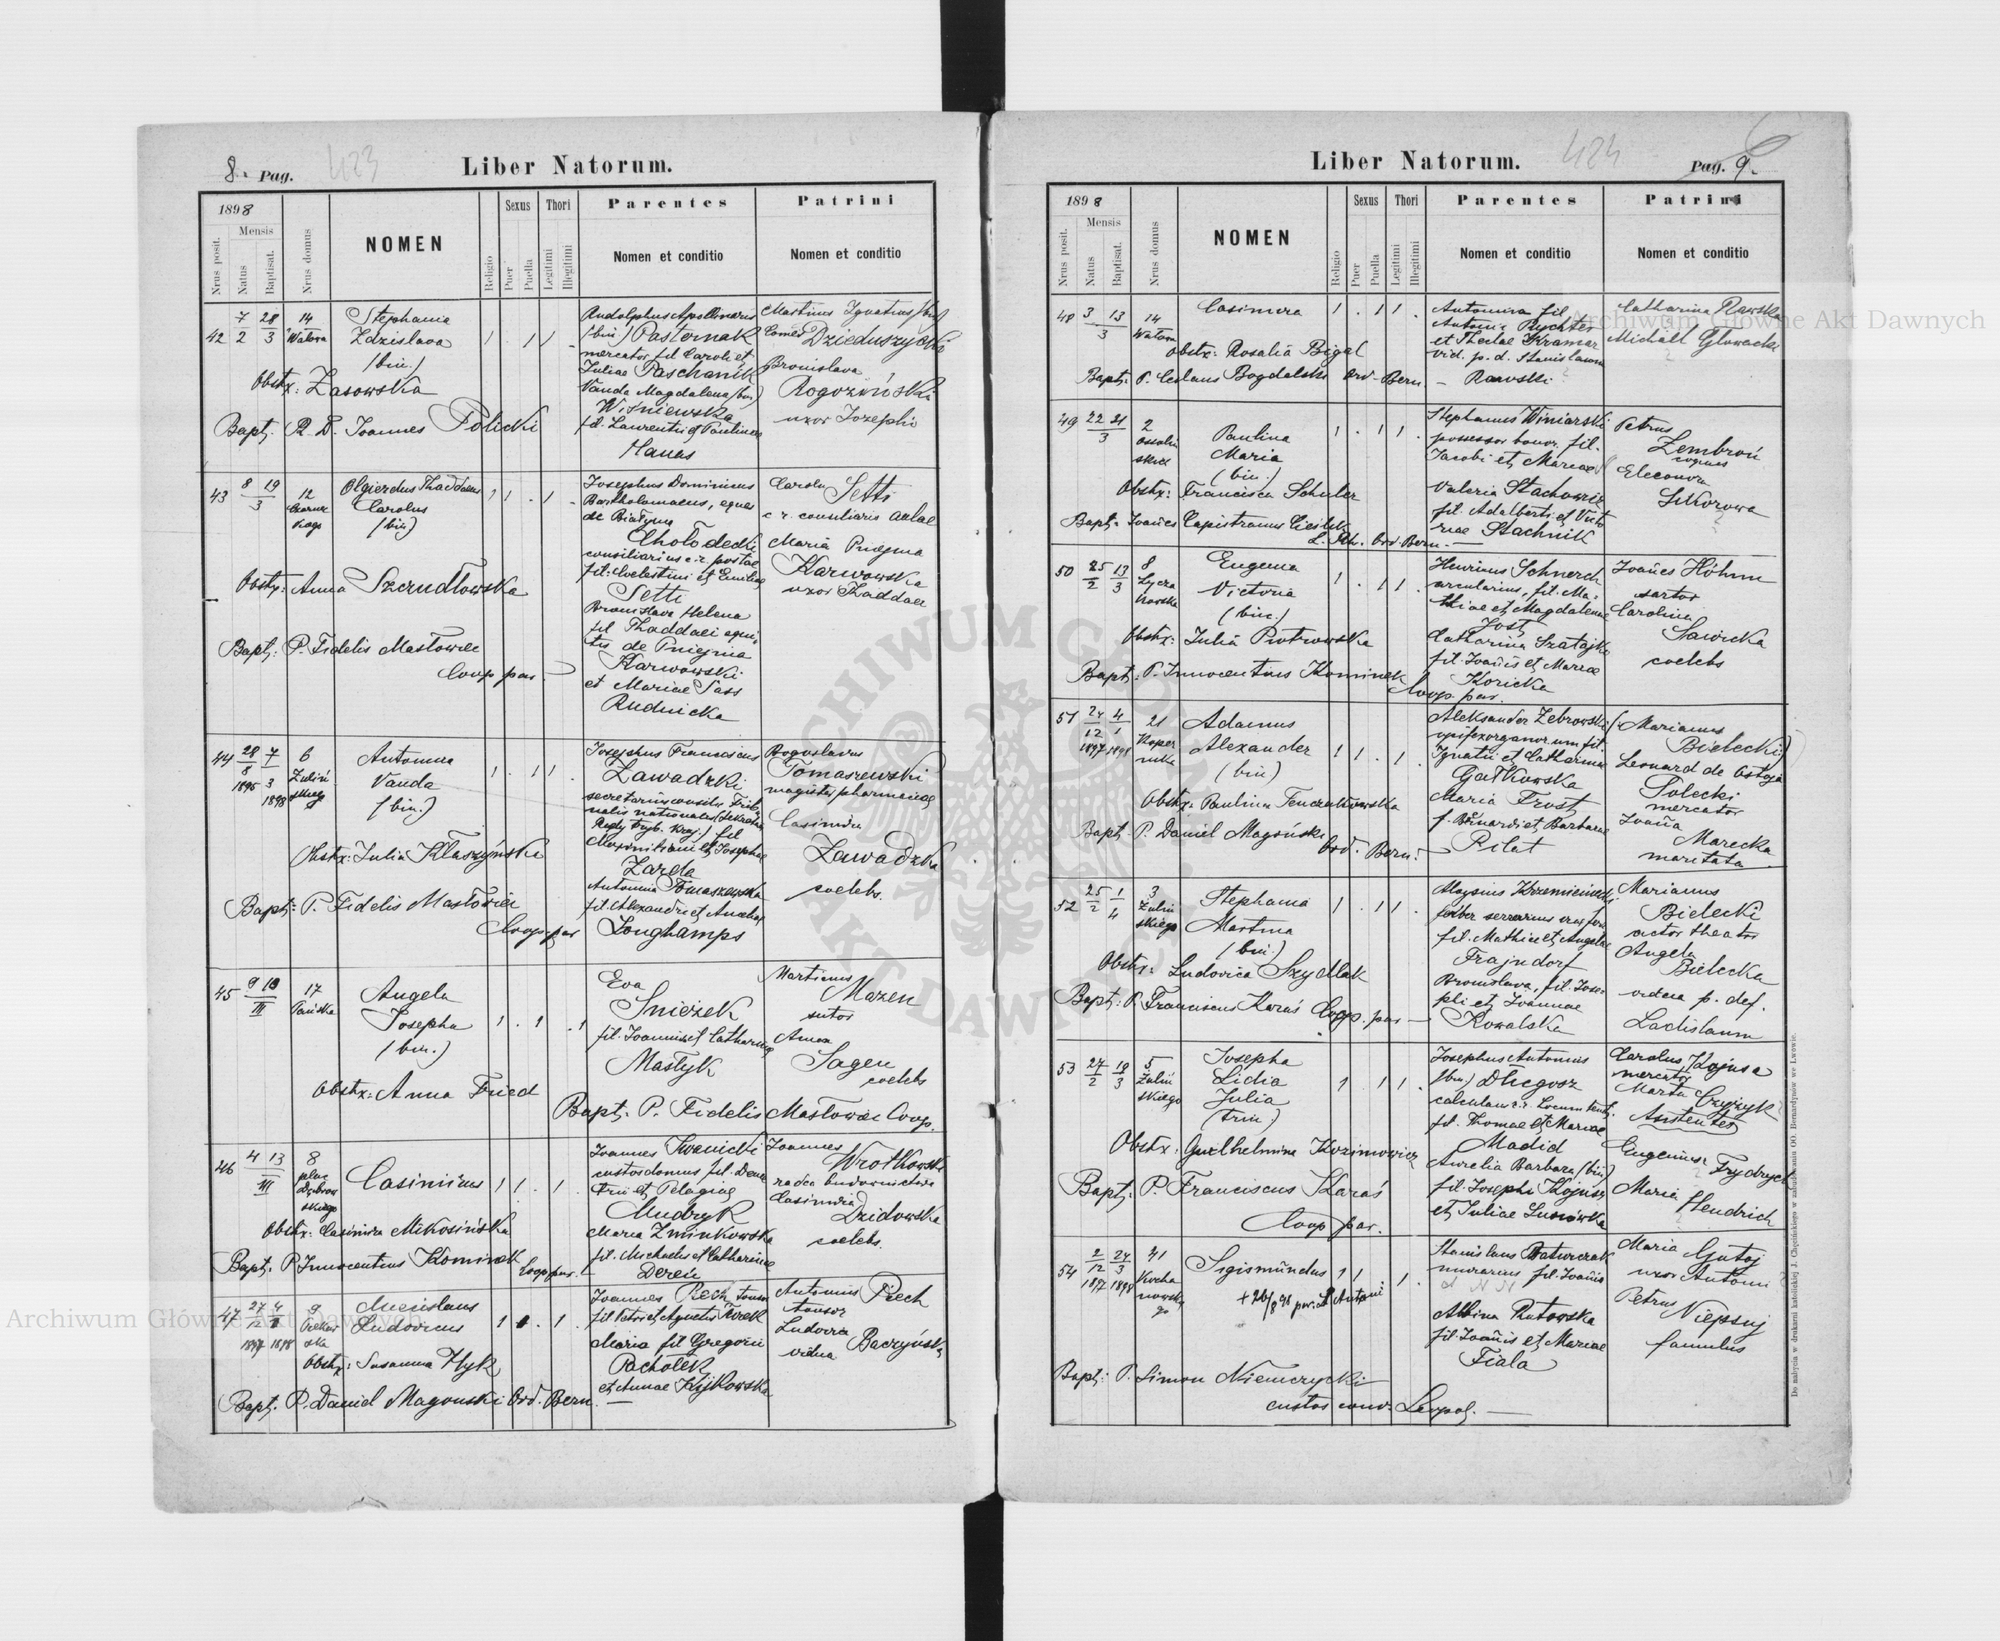 8. Pag.
423
Liber Natorum.
1898
Nrus posit.
Mensis
Natus
Baptisat.
Nrus domus
NOMEN
Religio
Sexus
Puer
Puella
Thori
Legitimi
Illegitimi
Parentes
Nomen et conditio
Patrini
Nomen et conditio
42
7/2
28/3
14
Watowa
Stephania
Zdzislava
(bin.)
1 . 1 1 .
Rudolphus Apollinarus
(bin.) Pasternak
mercator fil Caroli et
Juliae Paschanik
Vanda Magdalena (bin.)
Wiśniewska
fil. Laurentii et Paulinae
Hanas
Martinus Ignatius (bin)
Comes Dzieduszycki
Bronislava
Rogoziński
uxor Josephi
Obstx: Zasowska
Bapt. R. D. Joannes Policki
43
8 19
3
12
Olgierdus Thaddaeus
Carolus
(bin)
1 1 . 1 .
Josephus Dominicus
Bartholomaeus, eques
de Białynia
Chołodecki
consiliarius c. r. postae
fil. Coelestini et Emiliae
Setti
Bronislava Helena
fil Thaddaei equi
tis de Pniejnia
Karwowski
et Mariae Sass
Rudnicka
Carolus
Setti
c r. consiliaris aulae
Maria Pniejnia
Karwowska
uxor Thaddaei
Obstx: Anna Szczudłowska
Bapt: P. Fidelis Masłowiec
Coop par.
44
28/8
1895
7/3
1898
6
Zulińskiego
Antonina
Vanda
(bin.)
1 . 1 1 .
Josephus Franciscus
Zawadzki
Maximiliani et Josephae
Zarda
Antonina Tomaszewska
fil. Alexandri et Anielae
Longchamps
Boguslavus
Tomaszewski
magister pharmaciae
Casimira
Zawadzka
coelebs.
Obstx: Julia Kłaszyńska
Bapt: P. Fidelis Masłowiec
Coop. par
45
9 13
III
17
Pańska
Angela
Josepha
(bin.)
1 . 1 . 1
Eva
Sniezek
fil. Joannis et Catharinae
Mastyk
Martinus
Mazen
sutor
Anna
Sagen
coelebs
Obstx: Anna Fried
Bapt: P. Fidelis Masłowiec Coop.
46
4 13
III
8
plac
Dąbrow
skiego
Casimirus
1 1 . 1 .
Joannes Iwanicki
custos domus fil. Deme
trii et Pelagiae
Mudryk
Maria Zminkowska
fil. Michaelis et Catharinae
Dereń
Joannes
Wrotkowski
radca budownictwa
Casimira
Dzidowska
coelebs.
Obstx: Casimira Mikosińska
Bapt. P. Innocentius Kominek Coop par.
47
27/12
1897
4
1898
9
Piekarska
Miecislaus
Ludovicus
1 1 . 1 .
Joannes Piech tonsor
fil Petri et Agnetis Turek
Maria fil Gregorii
Pachołek
et Annae Kijkowska
Antonius Piech
tonsor
Ludovica
Baczyńska
vidua
Obstx: Susanna Hyk
Bapt. P. Daniel Magoński Ord. Bern.
Liber Natorum.
424
Pag. 9.
1898
Nrus posit.
Mensis
Natus
Baptisat.
Nrus domus
NOMEN
Religio
Sexus
Puer
Puella
Thori
Legitimi
Illegitimi
Parentes
Nomen et conditio
Patrini
Nomen et conditio
48
3 13
3
14
Watowa
Casimira
1 . 1 1 .
Antonina fil
Antonii Rychter
et Theclae Kramar
vid. p. d. Stanislaum
Rawski
Catharina Rawska
Michael Głowacki
Obstx: Rosalia Bigal
Bapt: P. Ceslaus Bogdalski Ord. Bern.
49
22 21
3
2
Ossoliń
skich
Paulina
Maria
(bin.)
1 . 1 1 .
Stephanus Winiarski
possessor bonor. fil.
Jacobi et Mariae
Valeria Stachowicz
fil. Adalberti et Victo
riae Stachnik
Petrus
Zembroń
Eleonora
Sikorowa
Obstx: Francisca Schuler
Bapt: Joañes Capistranus Cieślik
Ord. Bern.
50
25/2
13/3
8
Łycza
kowska
Eugenia
Victoria
(bin.)
1 . 1 1 .
Henricus Schnerch
arcularius, fil. Ma
thiae et Magdalenae
Jost
Catharina Szatajko
fil. Joañis et Mariae
Koricka
Joañes Höhm
sartor
Carolina
Sawicka
coelebs
Obstx: Julia Piotrowska
Bapt: P. Innocentius Kominek
Coop. par.
51
24/12
1897
4/1
1898
21
Koper
nika
Adamus
Alexander
(bin)
1 1 . 1 .
Aleksander Zebrowski
opifex organorum fil.
Ignatii et Catharinae
Gałkowska
Maria Frost
f. Bernardi et Barbarae
Pilat
(Marianus
Bielecki)
Leonard de Ostoja
Solecki
mercator
Joaña
Marecka
maritata
Obstx: Paulina Tenczakowska
Bapt. P. Daniel Magoński
Ord. Bern.
52
25/2
1/4
3
Zuliń
skiego
Stephania
Martina
(bin)
1 . 1 1 .
fil. Mathiae et Angelae
Frajndorf
Bronislava, fil. Jose
phi et Joannae
Kowalska
Marianus
Bielecki
actor theatr
Angela
Bielecka
vidua p. def.
Ladislaum
Obstx: Ludovica Szydłak
Bapt: P. Franciscus Karaś Coop. par
53
27/2
18/3
5
Zuliń
skiego
Josepha
Lidia
Julia
(trin.)
1 . 1 1 .
Josephus Antonius
(bin.) Długosz
fil. Thomae et Mariae
Madid
Aurelia Barbara (bin)
fil. Josephi Kojusz
et Juliae Lusiówka
Carolus Kojusa
mercator
Marta Czyżyk
Assistentes
Eugenius Frydrych
Maria Hendrich
Obstx. Guilhelmina Kozimowicz
Bapt: P. Franciscus Karaś
Coop par.
54
2/12
1897
24/3
1898
41
Kocha
nowskie
go
Sigismundus
1 1 1 .
fil. Joañis
Albina Rutowska
fil. Joañis et Mariae
Fiala
Maria Gutaj
uxor Antonii
Petrus
Niepsuj
famulus
Bapt: P. Simon Niemczycki
custos conv. Leopol.
Do nabycia w drukarni katolickiej J. Chęcińskiego w zabudowaniu OO. Bernardynów we Lwowie.
Archiwum Główne Akt Dawnych
Archiwum Główne Akt Dawnych
ARCHIWUM GŁÓWNE AKT DAWNYCH